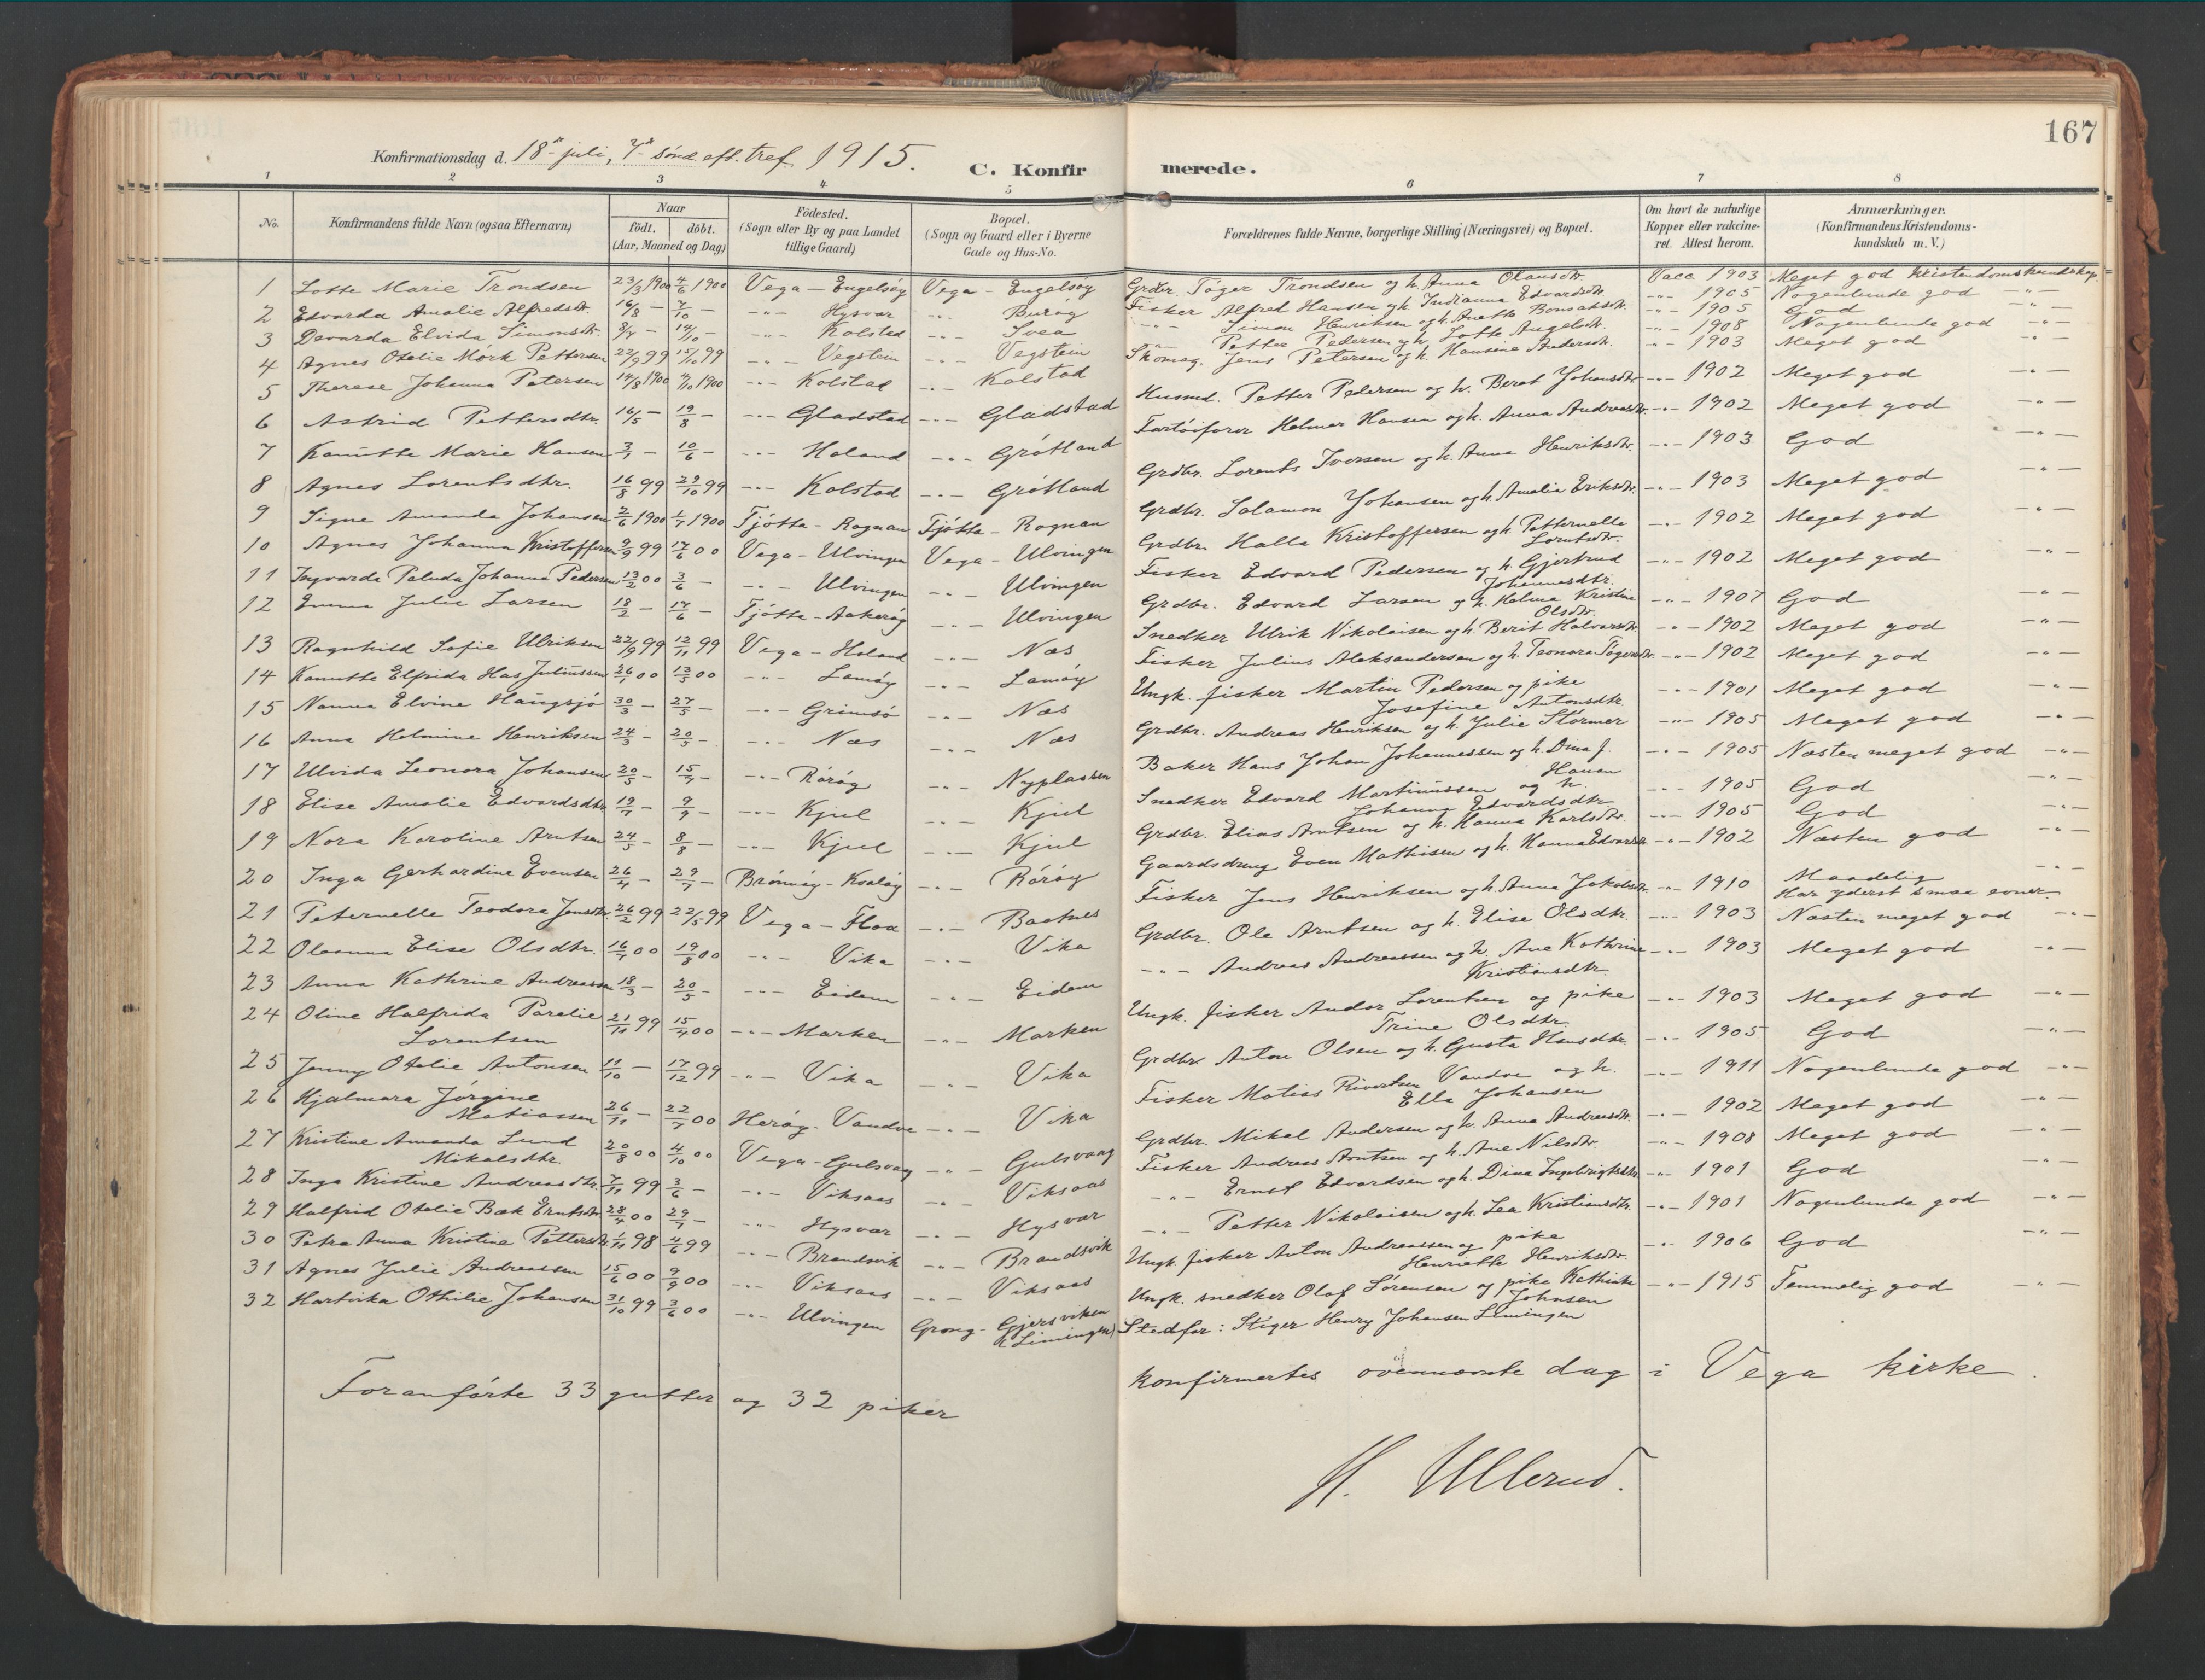 167
Konfirmationsdag d. 18de juli, 7de sönd. eft. tref. 1915.
C. Konfirmerede.
1 2 3 4 5 6 7 8
No. Konfirmandens fulde Navn (ogsaa Efternavn) Naar födt. döbt. (Aar, Maaned og Dag) Födested. (Sogn eller By og paa Landet tillige Gaard) Bopæl. (Sogn og Gaard eller i Byerne Gade og Hus-No. Forældrenes fulde Navne, borgerlige Stilling (Næringsvei) og Bopæl. Om havt de naturlige Kopper eller vakcineret. Attest herom. Anmærkninger. (Konfirmandens Kristendomskundskab m. V.)
1 Lotte Marie Trondsen 23/3 1900 4/6 1900 Vega - Engelsöy Vega - Engelsöy Grdbr. Töger Trondsen og h. Anna Olausdtr. Vacc 1903 Meget god Kristendomskundskap
2 Edvarda Amalie Alfredsdtr. 16/8 - 7/10 - -"- Hysvær -"- Buröy Fisker Alfred Hansen og h. Indianna Edvardsdtr. -"- 1905 Nogenlunde god -"-
3 Devarda Elvida Simonsdtr. 8/8 - 14/10 - -"- Kolstad -"- Svea -"- Simon Henriksen og h. Anette Bonsaksdtr. -"- 1905 God -"-
4 Agnes Otelie Mörk Pettersen 22/9 99 15/10 99 -"- Vegstein -"- Vegstein -"- Petter Pedersen og h. Lotte Angelsdtr. -"- 1908 Nogenlunde god -"-
5 Therese Johanna Petersen 14/8 1900 4/10 1900 -"- Kolstad -"- Kolstad Skomag. Jens Petersen og h. Hansine Andersdtr. -"- 1903 Meget god -"-
6 Astrid Pettersdtr. 16/5 - 19/8 - -"- Gladstad -"- Gladstad Husmd. Petter Pedersen og h. Beret Johansdtr. -"- 1902 Meget god -"-
7 Kanutte Marie Hansen 3/1 - 10/6 - -"- Holand -"- Grötland Fartöiförer Helmer Hansen og h. Anna Andreasdtr. -"- 1902 Meget god -"-
8 Agnes Lorentsdtr. 16/8 99 29/10 99 -"- Kolstad -"- Grötland Grdbr. Lorents Iversen og h. Anna Henriksdtr. -"- 1903 God -"-
9 Signe Amanda Johansen 2/6 1900 1/7 1900 Tjötta - Rognan Tjötta - Rognan Grdbr. Salamon Johansen og h. Amalia Eriksdtr. -"- 1903 Meget god -"-
10 Agnes Johanna Kristoffersen 9/9 99 17/6 00 Vega - Ulvingen Vega - Ulvingen Grdbr. Halla Kristoffersen og h. Petternelle Lorntsdtr. -"- 1902 Meget god -"-
11 Ingvarda Paluda Johanna Pedersen 13/2 00 3/6 - -"- Ulvingen -"- Ulvingen Fisker Edvard Pedersen og h. Gjertrud Johannesdtr. -"- 1902 Meget god -"-
12 Emma Julie Larsen 18/2 - 17/6 - Tjötta - Aakeröy -"- Ulvingen Grdbr. Edvard Larsen og h. Helma Kristine Olsdtr. -"- 1907 God -"-
13 Ragnhild Sofie Ulriksen 22/9 99 12/11 99 Vega - Holand -"- Næs Snedker Ulrik Nikolaisen og h. Berit Halvorsdtr. -"- 1902 Meget god -"-
14 Kanutte Elfrida Has Juliussen 26/1 00 13/5 00 -"- Lamöy -"- Lamöy Fisker Julius Aleksandersen og h. Teonora Tögersdtr. -"- 1902 Meget god -"-
15 Nanna Elvine Haugsjö 30/3 - 27/5 - -"- Grimsö -"- Næs Ungk. fisker Martin Pedersen og pike Josefine Antonsdtr. -"- 1901 Meget god -"-
16 Anna Helmine Henriksen 24/3 - 20/5 - -"- Næs -"- Næs Grdbr. Andreas Henriksen og h. Julie Störmer -"- 1905 Meget god -"-
17 Ulvida Leonora Johansen 20/5 - 15/7 - -"- Röröy -"- Nyplassen Baker Hans Johan Johannessen og h. Dina J. Hansen -"- 1905 Næsten meget god -"-
18 Elise Amalie Edvardsdtr. 19/7 - 9/9 - -"- Kjul -"- Kjul Snedker Edvard Martinussen og h. Johanna Edvardsdtr. -"- 1905 God -"-
19 Nora Karoline Arntsen 24/5 - 8/8 - -"- Kjul -"- Kjul Grdbr. Elias Arntsen og h. Hanna Karlsdtr. -"- 1905 God -"-
20 Inga Gerhardine Evensen 26/4 - 29/7 - Brönnöy - Kvalöy -"- Röröy Gaardsdreng Even Mathisen og h. Hanna Edvardsdtr. -"- 1902 Næsten god -"-
21 Peternelle Teodora Jensdtr. 26/2 99 22/5 99 Vega - Floa -"- Baatnes Fisker Jens Henriksen og h. Anna Jakobsdtr. -"- 1910 Maadelig -"- Har yderst smaa evner.
22 Olasuna Elise Olsdtr. 16/4 00 19/8 00 -"- Vika -"- Vika Grdbr. Ole Arntsen og h. Elise Olsdtr. -"- 1903 Næsten meget god -"-
23 Anna Kathrine Andreassen 18/3 - 20/5 - -"- Eidem -"- Eidem -"- Andreas Andreassen og h. Ane Kathrine Kristiansdtr. -"- 1903 Meget god -"-
24 Oline Halfrida Parelie Lorentsen 21/11 99 15/4 00 -"- Marken -"- Marken Ungk. fisker Andor Lorentsen og pike Trine Olsdtr. -"- 1903 Meget god -"-
25 Jenny Otelie Antonsen 11/10 - 17/12 99 -"- Vika -"- Vika Grdbr. Anton Olsen og h. Gusta Hansdtr. -"- 1905 God -"-
26 Hjalmara Jörgine Matiassen 26/11 - 22/7 00 Heröy - Vandve -"- Vika Fisker Matias Rivertsen Vandve og h. Ella Johansen -"- 1911 Nogenlunde god -"-
27 Kristine Amanda Lund Mikalsdtr. 20/8 00 4/10 00 Vega - Gulsvaag -"- Gulsvaag Grdbr. Mikal Andersen og h. Anna Andreasdtr. -"- 1902 Meget god -"-
28 Inga Kristine Andreasdtr. 7/11 99 3/6 - -"- Viksaas -"- Viksaas Fisker Andreas Arntsen og h. Ane Nilsdtr. -"- 1908 Meget god -"-
29 Halfrid Otelie Bæk Ernstsdtr. 28/4 00 29/7 - -"- Hysvær -"- Hysvær -"- Ernst Edvardsen og h. Dina Ingebrigtsdtr. -"- 1901 God -"-
30 Petra Anna Kristine Pettersdtr. 1/11 98 4/6 99 -"- Brandsvik -"- Brandsvik -"- Petter Nikolaisen og h. Lea Kristiansdtr. -"- 1901 Nogenlunde god -"-
31 Agnes Julie Andreassen 15/6 00 9/9 00 -"- Viksaas -"- Viksaas Ungk. fisker Anton Andreassen og pike Henriette Henriksdtr. -"- 1906 God -"-
32 Hartvika Othilie Johansen 31/10 99 3/6 00 -"- Ulvingen Grong - Gjersviken (Limingen) Ungk. snedker Olaf Sörensen og pike Kathinka Johnsen -"- 1915 Temmelig god -"-
Stedfar: Stiger Henry Johansen Limingen
Foranförte 33 gutter og 32 piker konfirmertes ovennævnte dag i Vega kirke.
H. Ullerud.